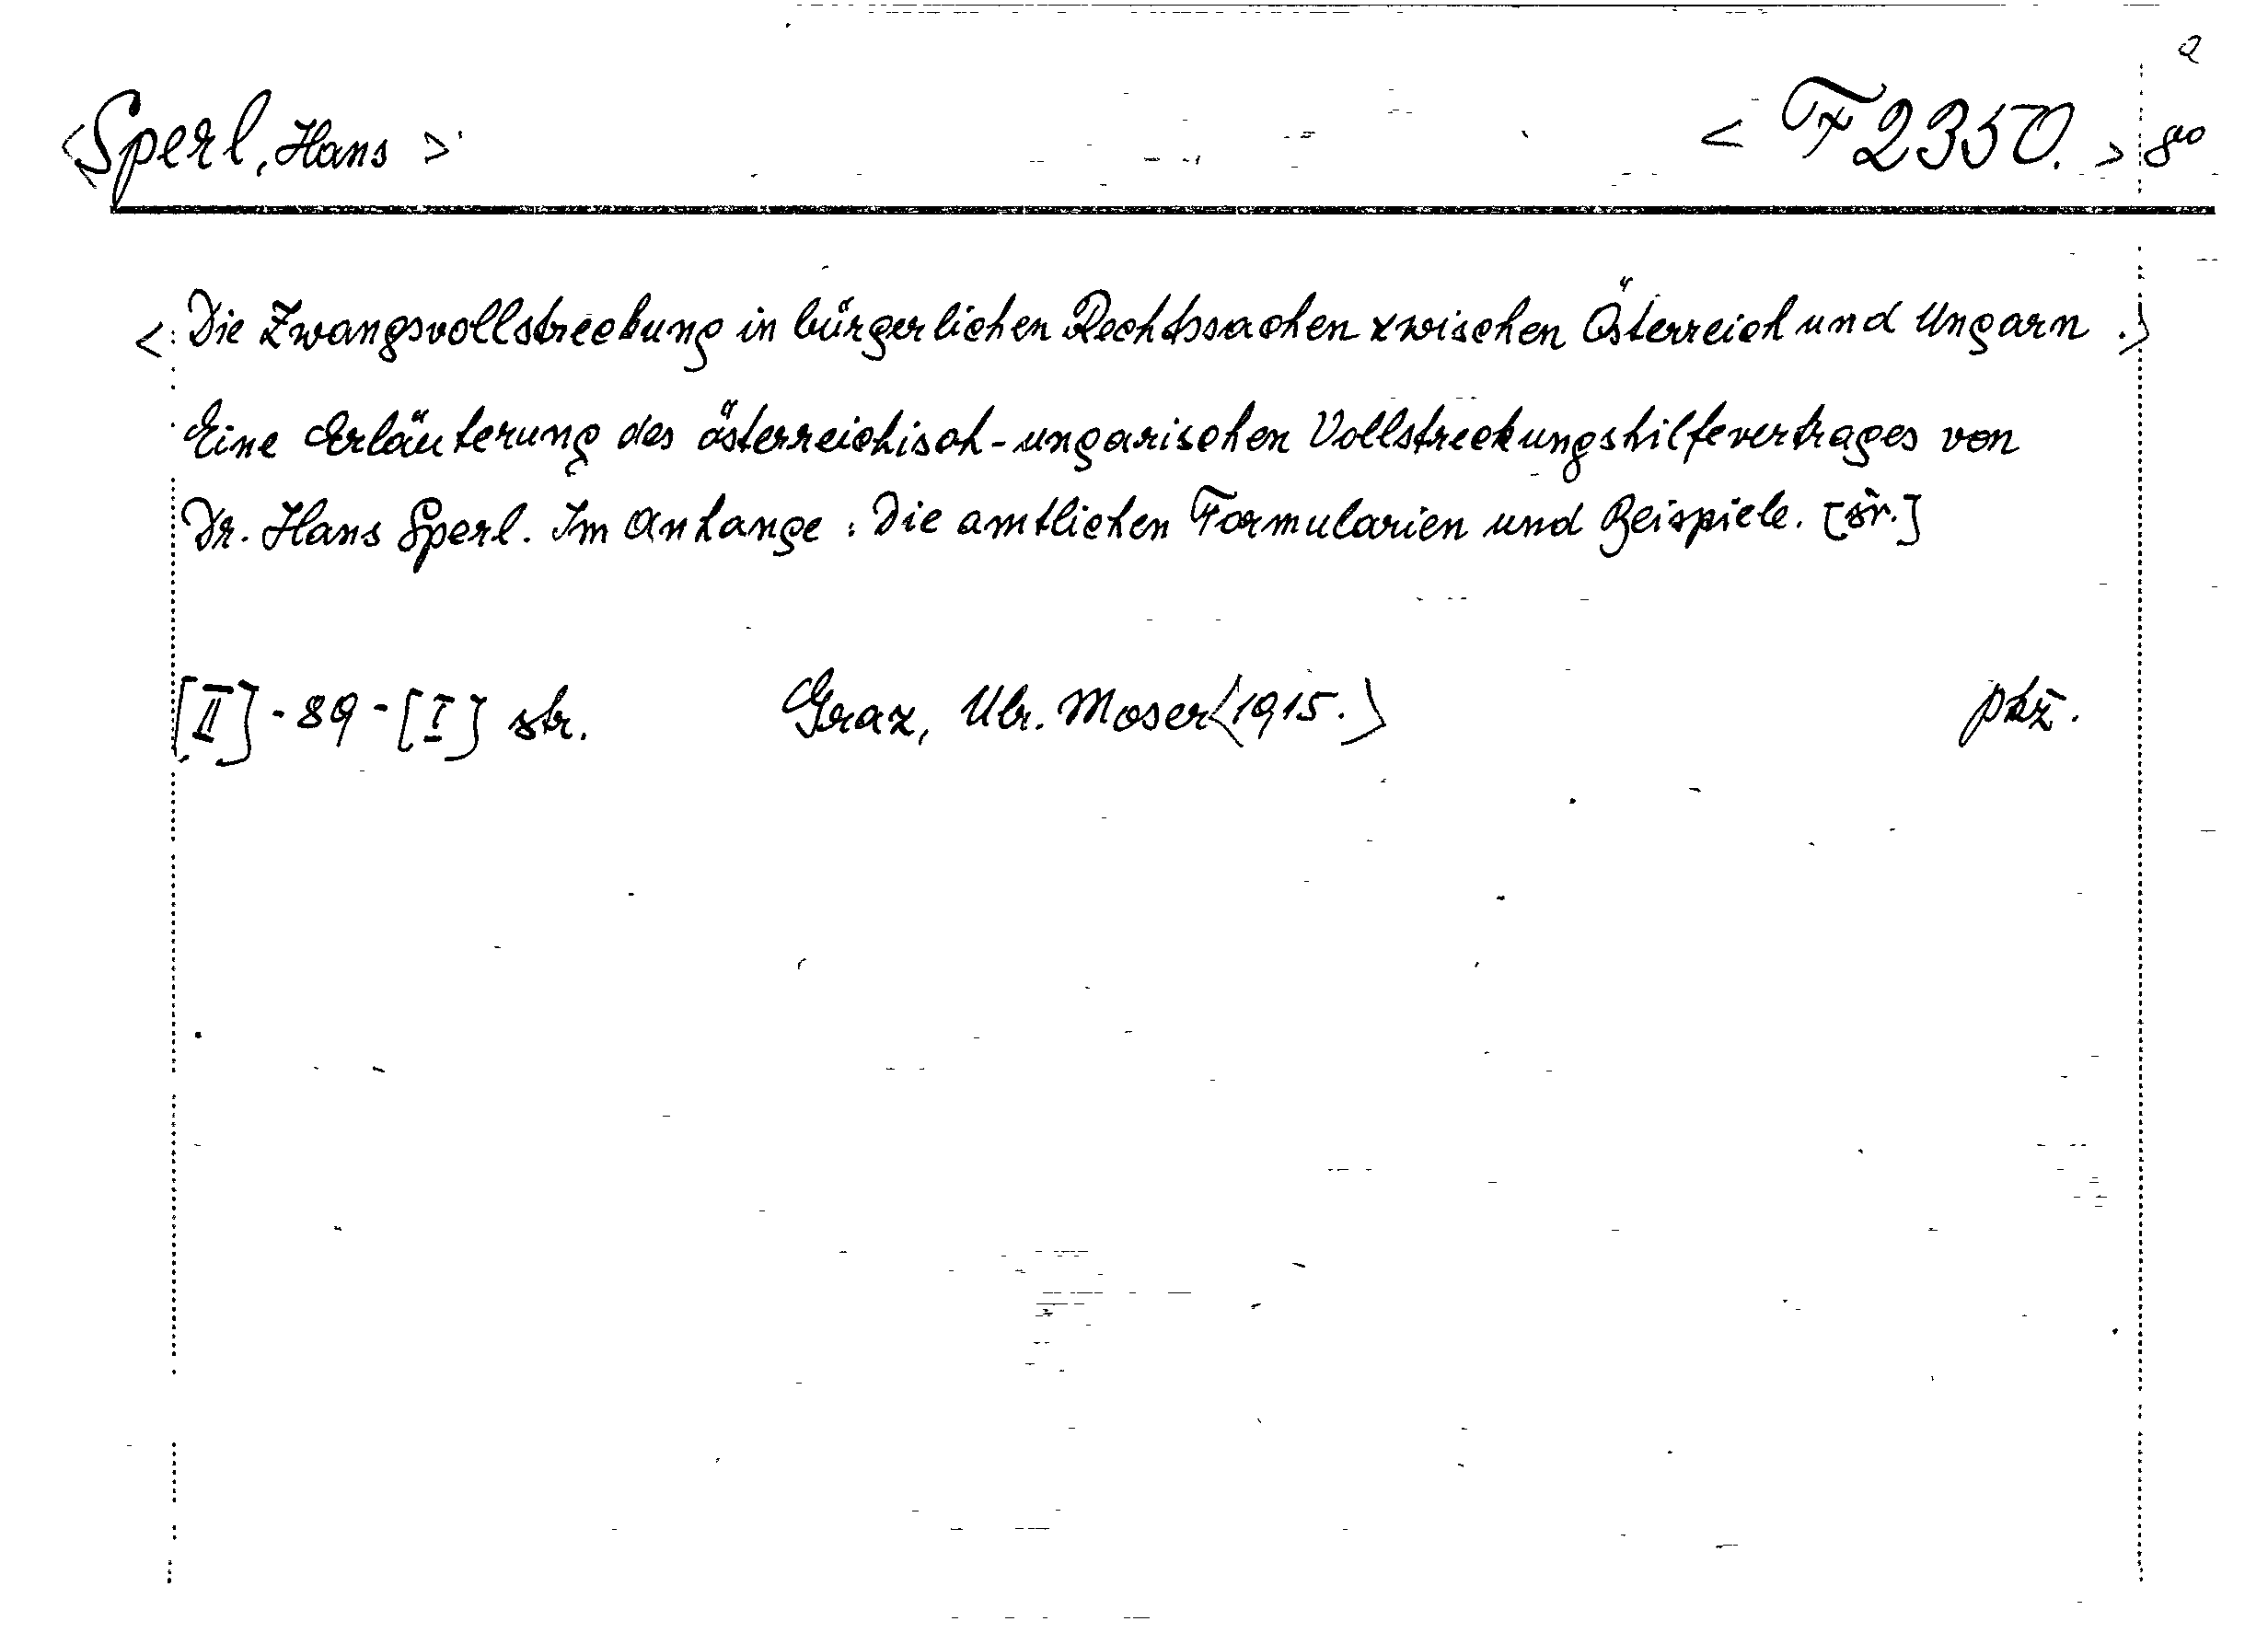 <Sperl, Hans> <F 2350.> 8°
<Die Zwangsvollstreckung in bürgerlichen Rechtssachen zwischen Österreich und Ungarn.>
Eine Erläuterung des österreichisch-ungarischen Vollstreckungshilfevertrages von
Dr. Hans Sperl. Im Anhange: Die amtlichen Formularien und Beispiele. [šr.]
[II] - 89 - [I] str. Graz, Ulr. Moser <1915.> pkž.